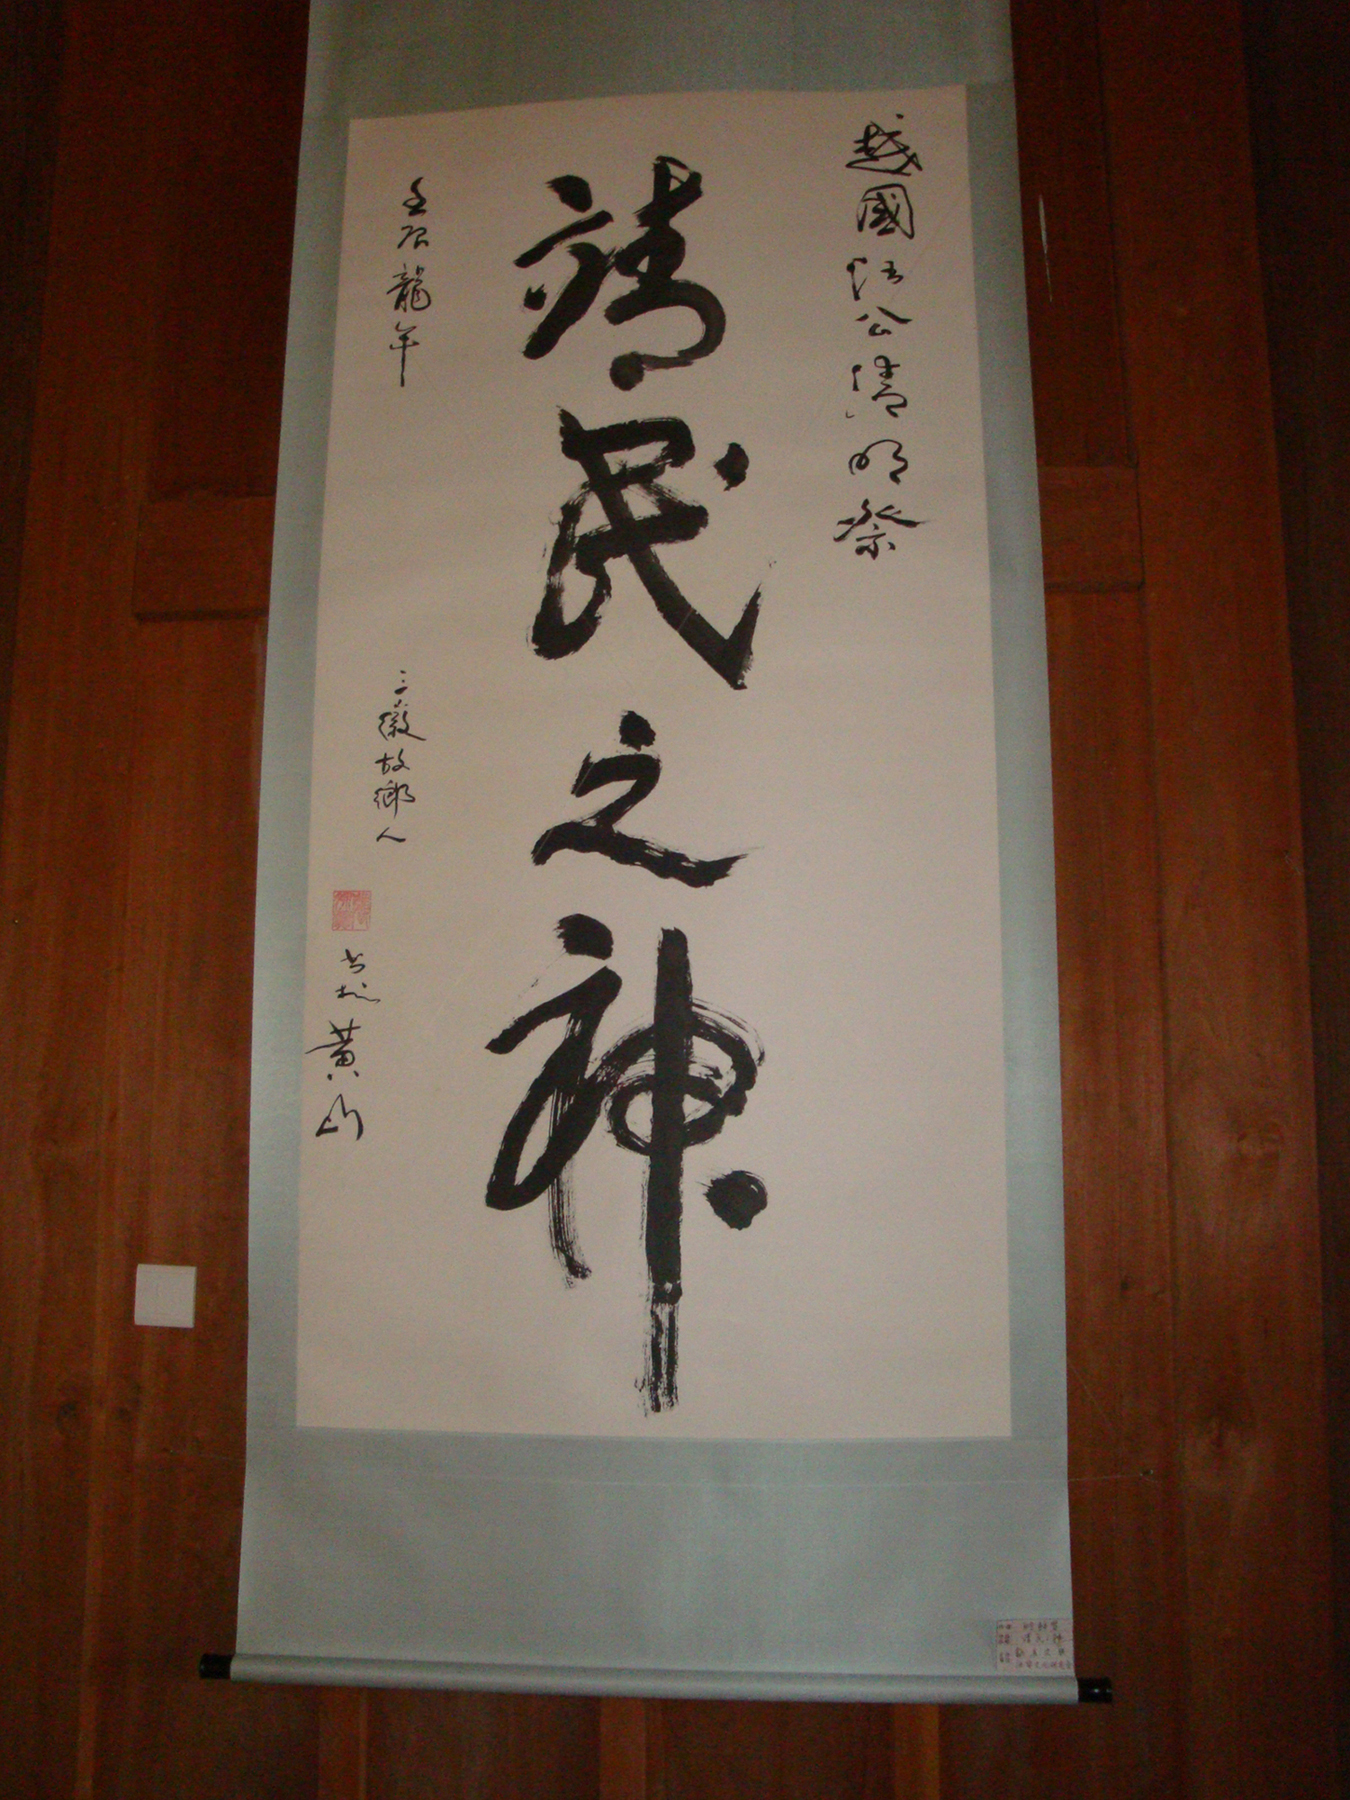 越國汪公清明祭
靖民之神
壬辰龍年
三徽故鄉人
黃山